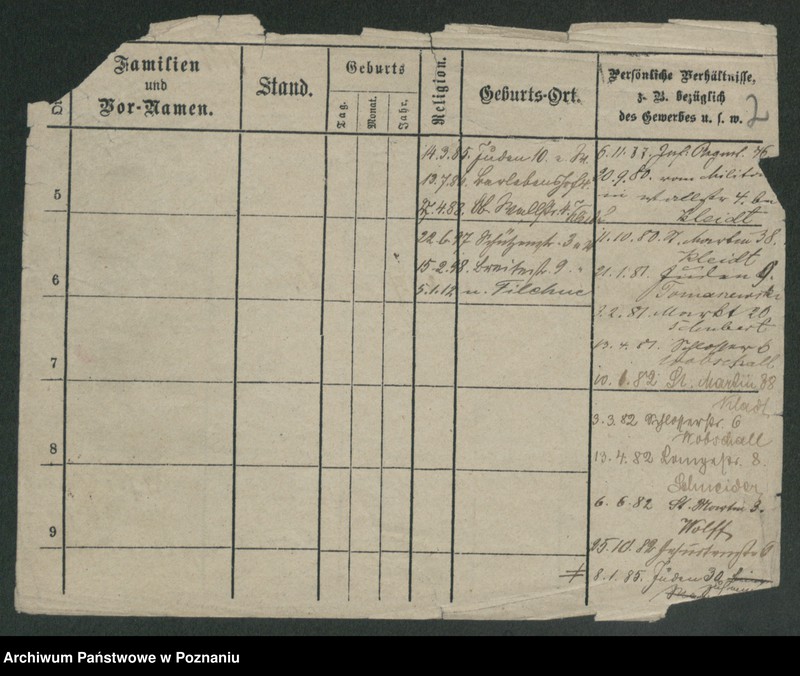 Familien
und
Vor-Namen.
Stand.
Geburts
Tag.
Monat.
Jahr.
Religion.
Geburts-Ort.
Persönliche Verhältnisse,
z. B. bezüglich
des Gewerbes u. s. w.
2
5
6
7
8
9
14.3.85. Juden 10.
13.7.86.
4.88. Wallstr.
22.6.97 Schützenstr. 3
15.2.98. Breitestr. 9.
5.1.12 n. Filehne
6.11.77. Inf. Regmt. 46
20.9.80. vom Militär
in Wallstr 4. bei
Kleidt
11.10.80. St. Martin 38.
Kleidt
21.1.81. Juden 9.
Tomaszewski
2.81. Markt 20
Schubert
13.4.81. Schlosser 6
Wobschall
10. 82 St. Martin 38
Kleidt
3.3.82 Schlosserstr. 6
Wobschall
13.4.82 Langestr. 8.
Schneider
6.6.82 St. Martin 3.
Wolff
25.10.82 6
8.1.85. Juden 30
Archiwum Państwowe w Poznaniu